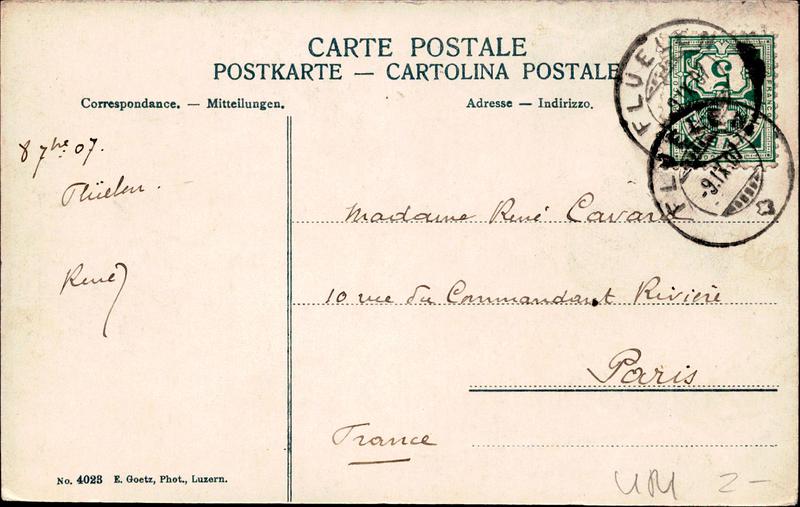 CARTE POSTALE
POSTKARTE — CARTOLINA POSTALE
Correspondance. — Mitteilungen.
Adresse — Indirizzo.
8 7bre 07.
Flüelen.
René
Madame René Cavard
10 rue du Commandant Rivière
Paris
France
No. 4023 E. Goetz, Phot., Luzern.
FLUEL
5
FRANCO
FLUELEN
-9.IX.07
2-